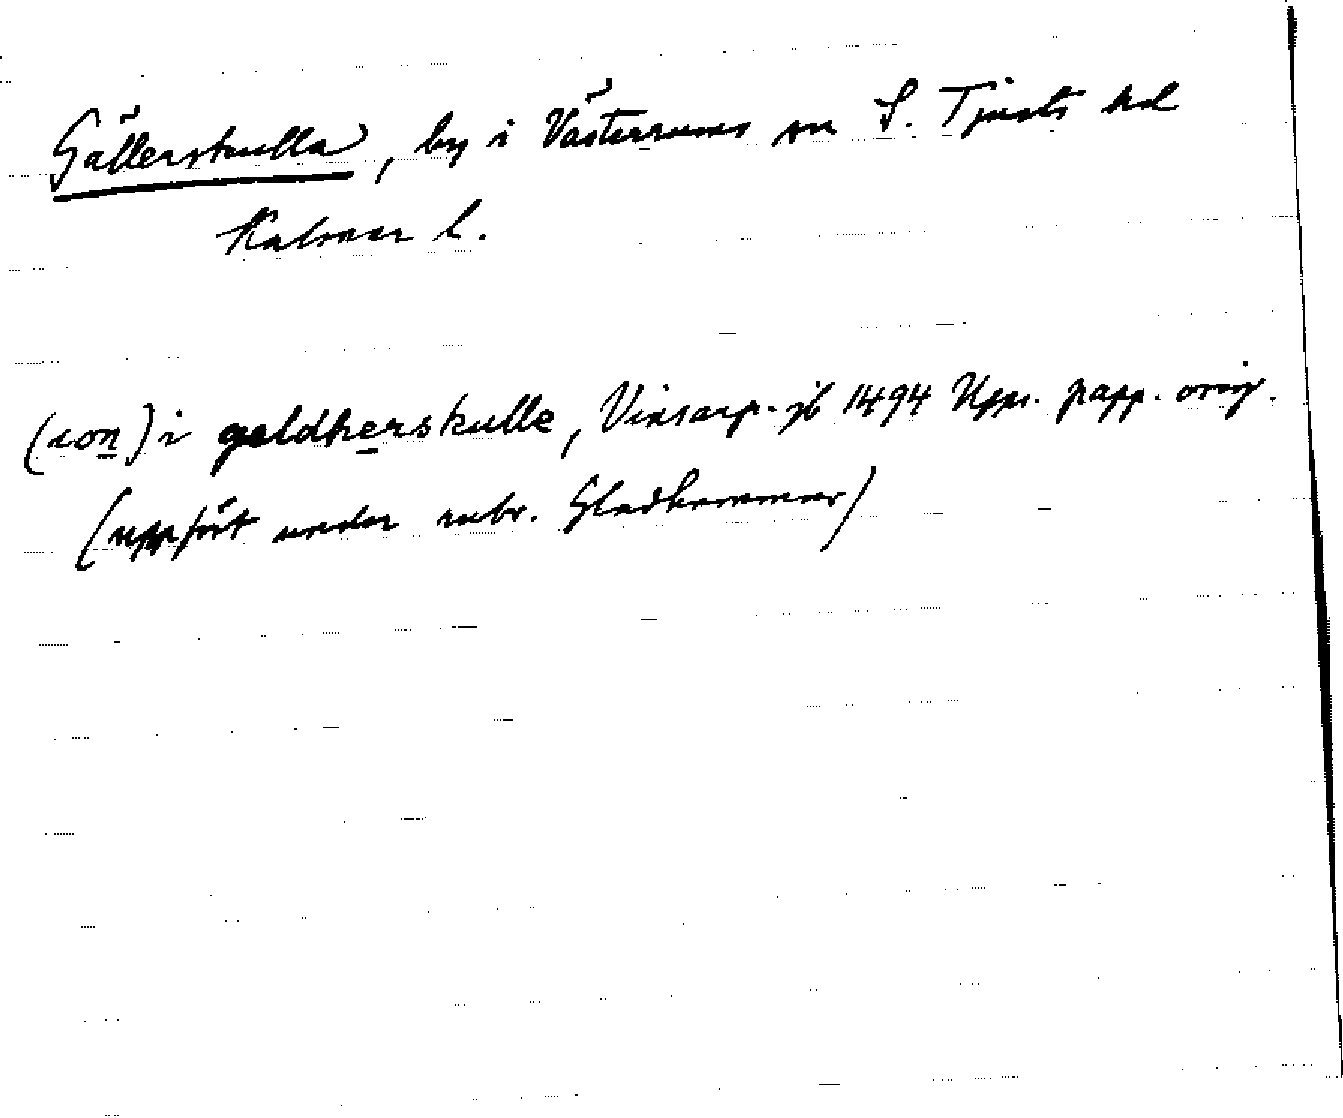 Gällerskulla, by i Västerrums sn S. Tjusts hd
Kalmar l.
(son) i geldherskulle, Vinsarp. jb 1494 Upps. papp. orig.
(uppfört under rubr. Gladhammar)